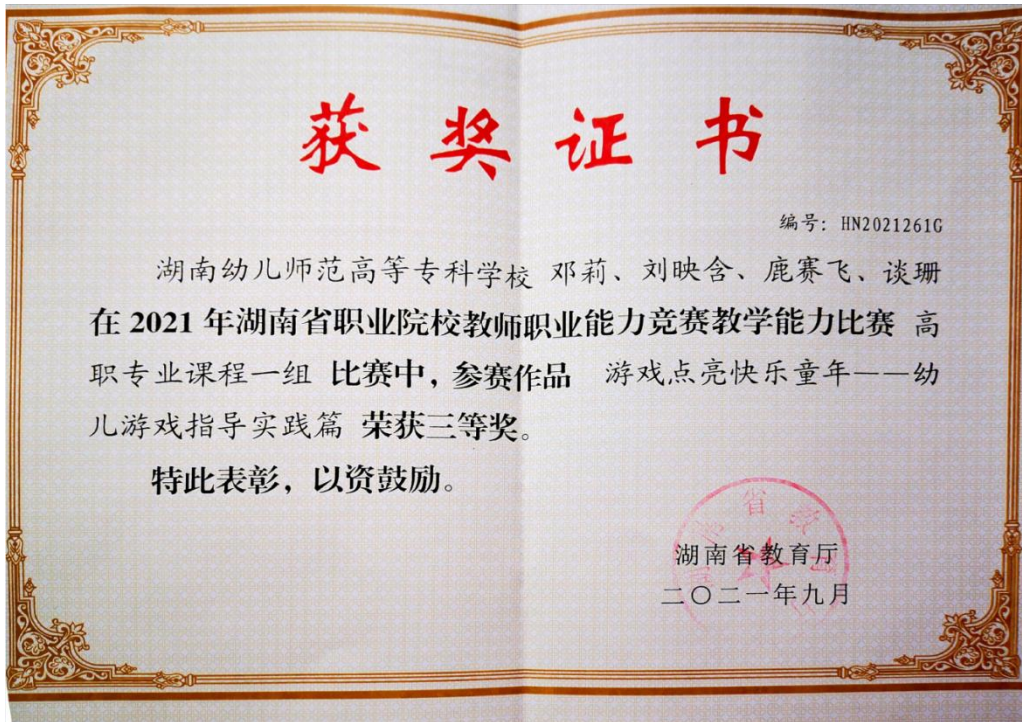 获奖证书
编号：HN2021261G
湖南幼儿师范高等专科学校 邓莉、刘映含、鹿赛飞、谈珊
在 2021 年湖南省职业院校教师职业能力竞赛教学能力比赛 高
职专业课程一组 比赛中，参赛作品 游戏点亮快乐童年——幼
儿游戏指导实践篇 荣获三等奖。
特此表彰，以资鼓励。
湖南省教育厅
二〇二一年九月